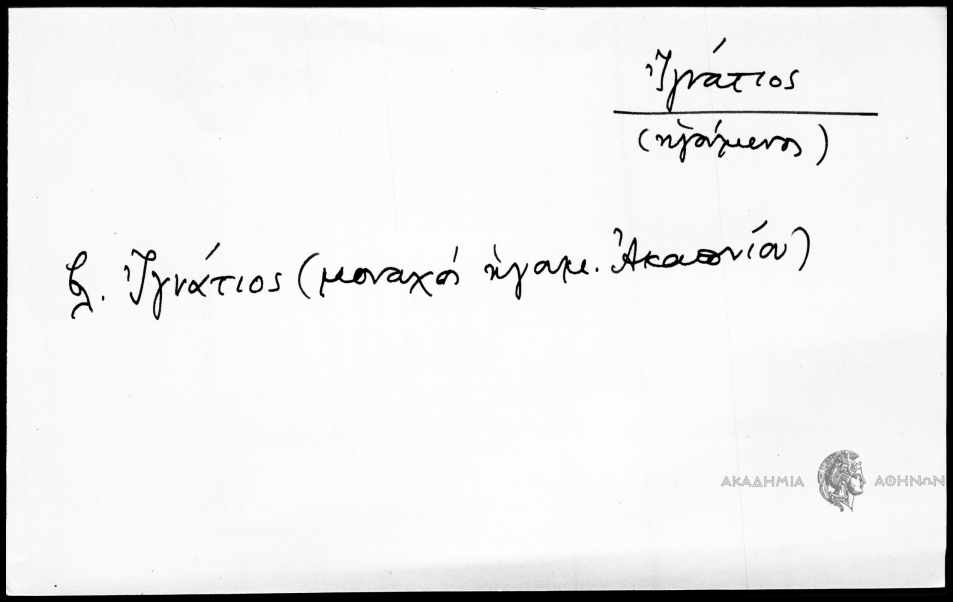 Ἰγνάτιος
(ἡγούμενος)
βλ. Ἰγνάτιος (μοναχός ἡγουμ. Ἀκαπνίου)
ΑΚΑΔΗΜΙΑ ΑΘΗΝΩΝ